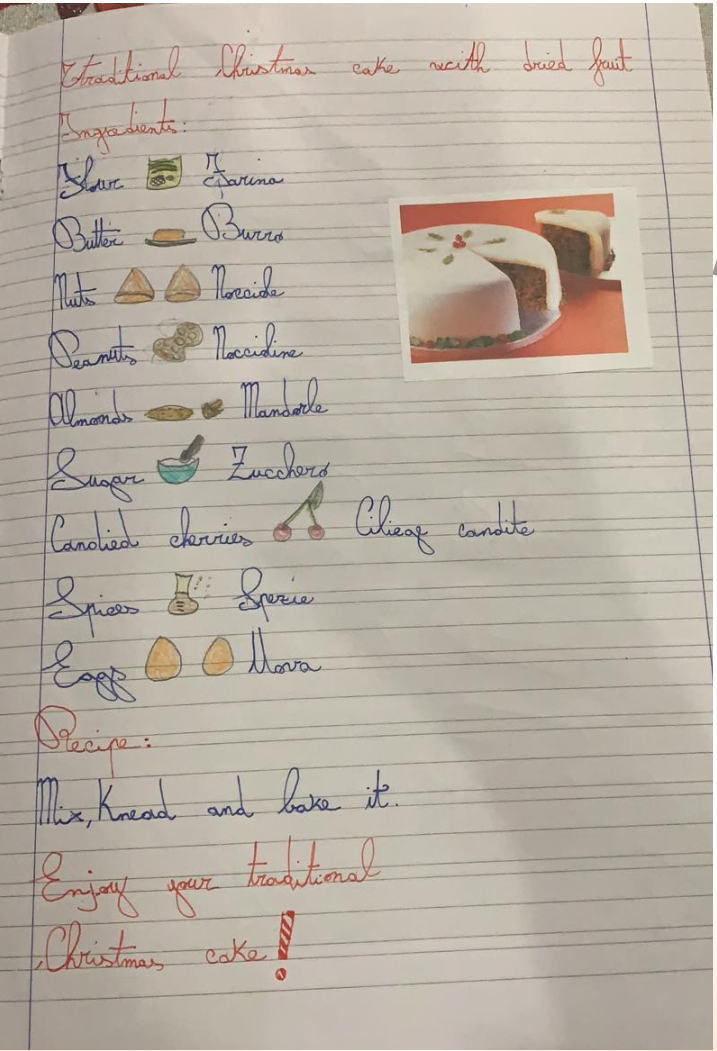 Traditional Christmas cake with dried fruit
Ingredients:
Flour Farina
Butter Burro
Nuts Nocciole
Peanuts Noccioline
Almonds Mandorle
Sugar Zucchero
Candied cherries Ciliege candite
Spices Spezie
Eggs Uova
Recipe:
Mix, Knead and bake it.
Enjoy your traditional
Christmas cake!